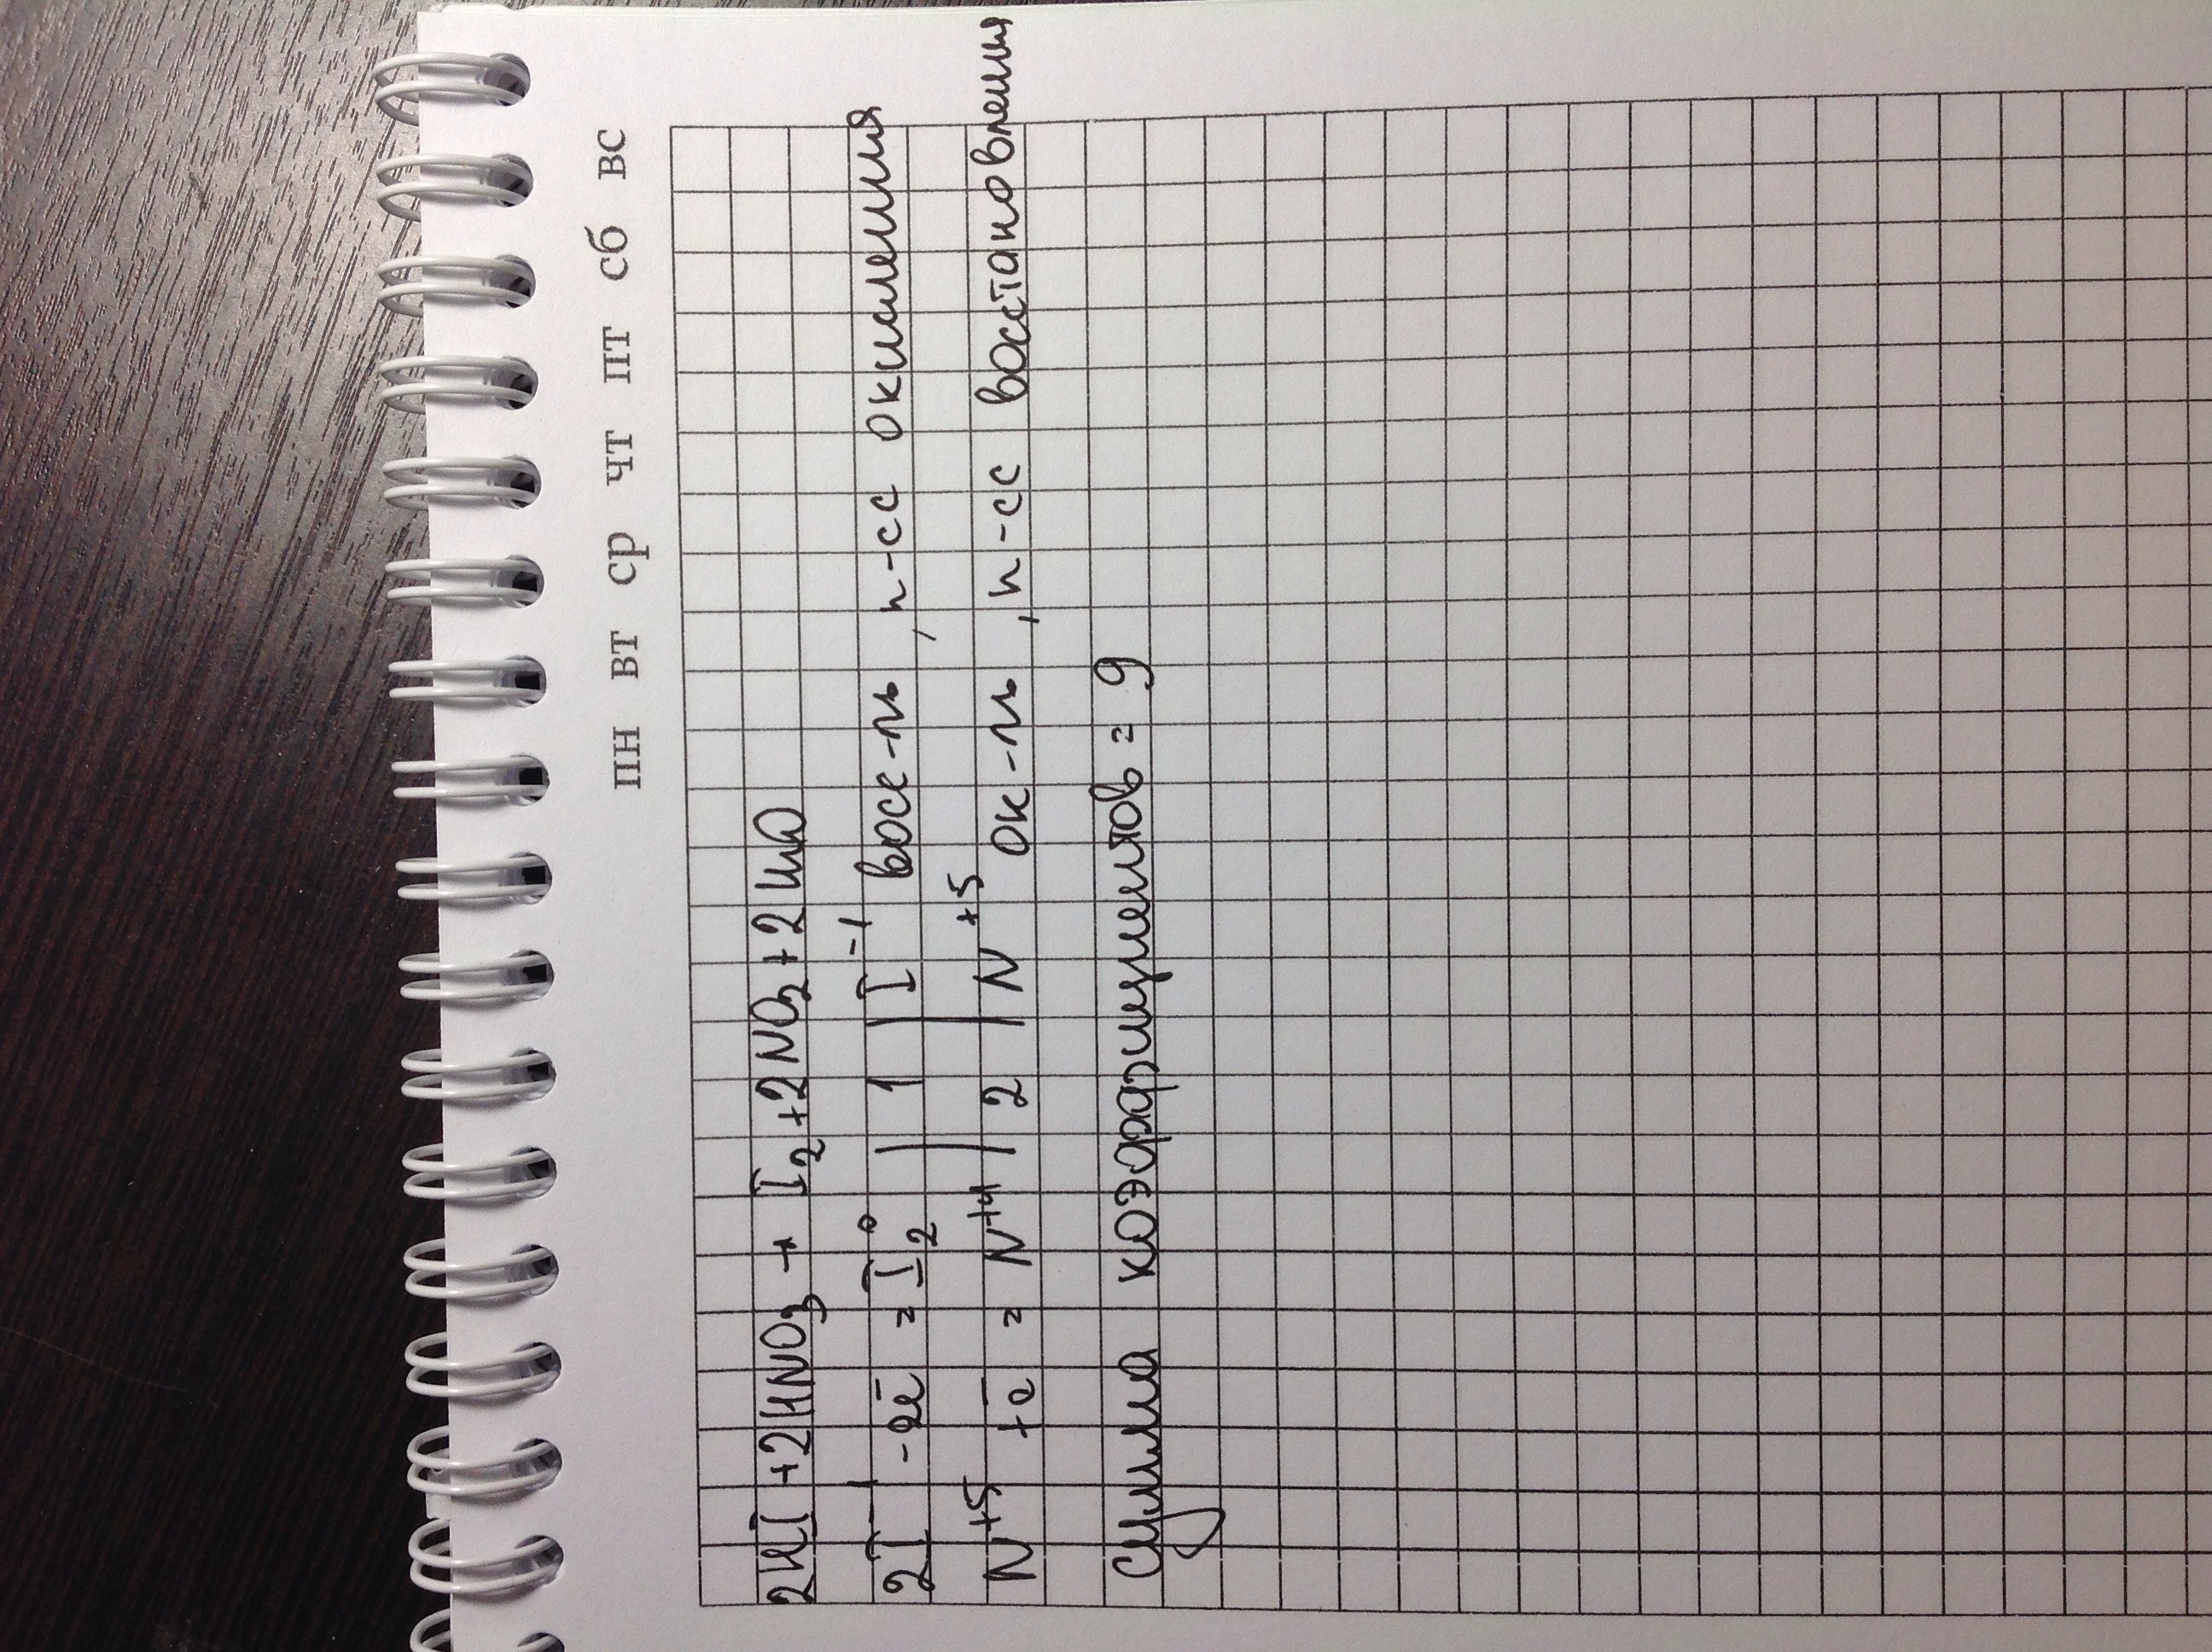 пн вт ср чт пт сб вс
2HI + 2HNO₃ → I₂ + 2NO₂ + 2H₂O
2I⁻¹ -2ē = I₂⁰ | 1 | I⁻¹ восс-ль, п-сс окисления
N⁺⁵ +ē = N⁺⁴ | 2 | N⁺⁵ ок-ль, п-сс восстановления
Сумма коэффициентов = 9